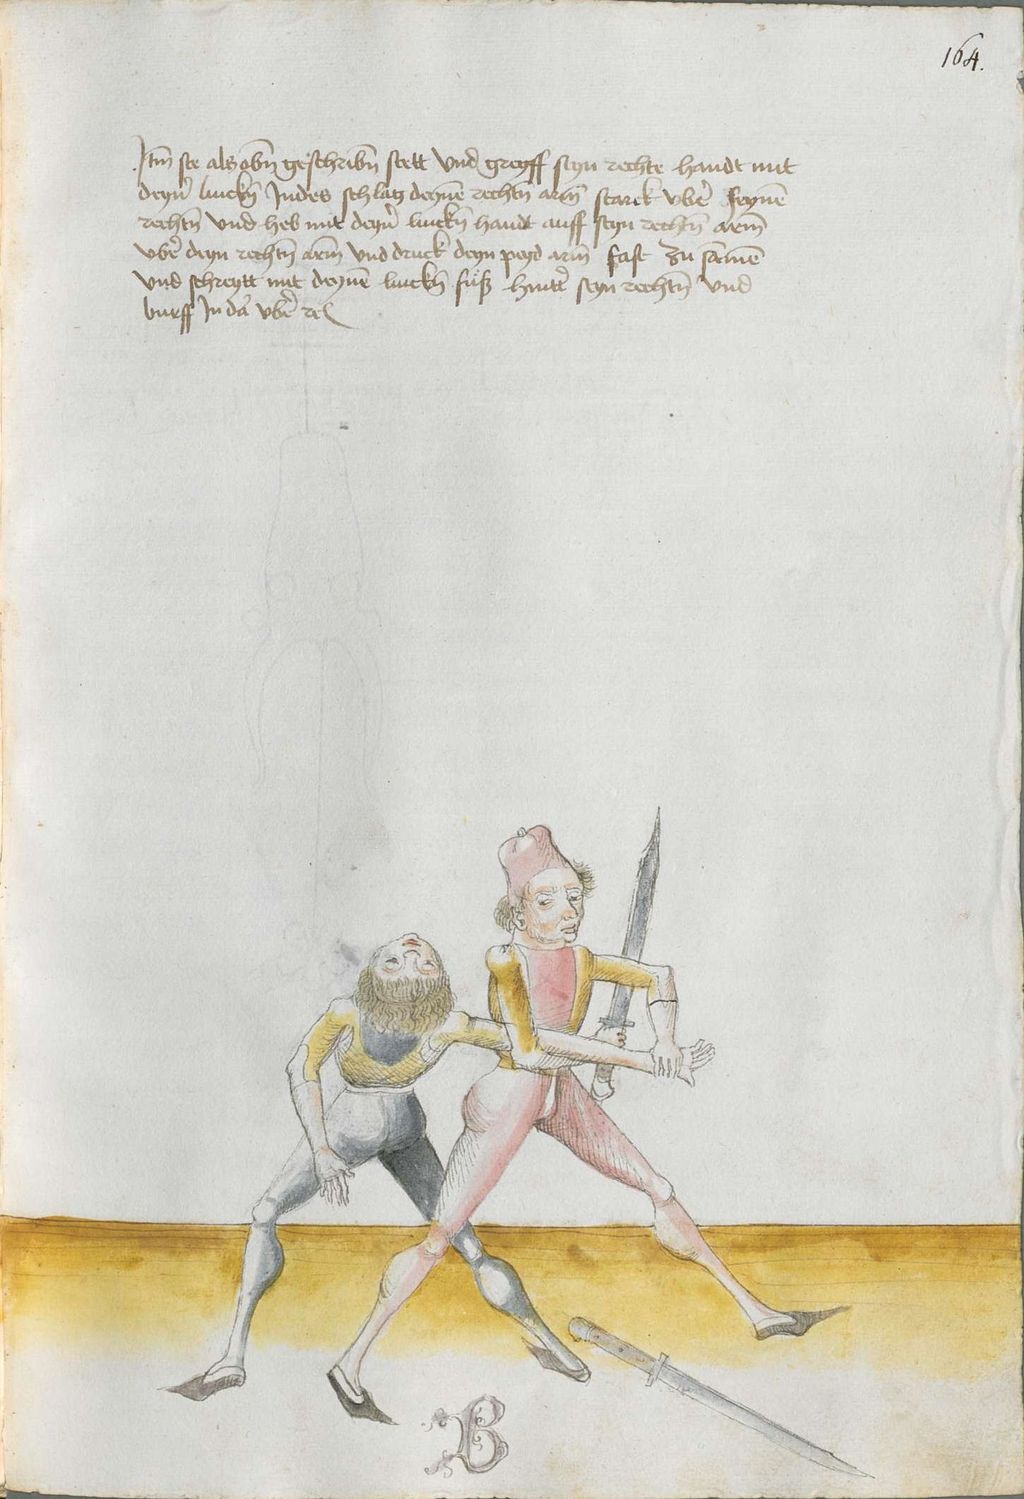 164.
Itm̄ ste als obn̄ geschribn̄ stett Vnd greyff seyn rechte handt mit
deyn̄ linckn̄ Jndes schlag deynē rechtn̄ arm̄ starck vber̄ seynē
rechtn̄ Vnd heb mit deyn̄ linckn̄ handt auff seyn rechtn̄ arm̄
vber̄ deyn rechtn̄ arm̄ Vnd druck deyn peyd arm̄ fast zu sāmē
Vnd schreytt mit deynē linckn̄ fuß hintter̄ seyn rechtn̄ Vnd
wirff Jn da vber̄ rc
B